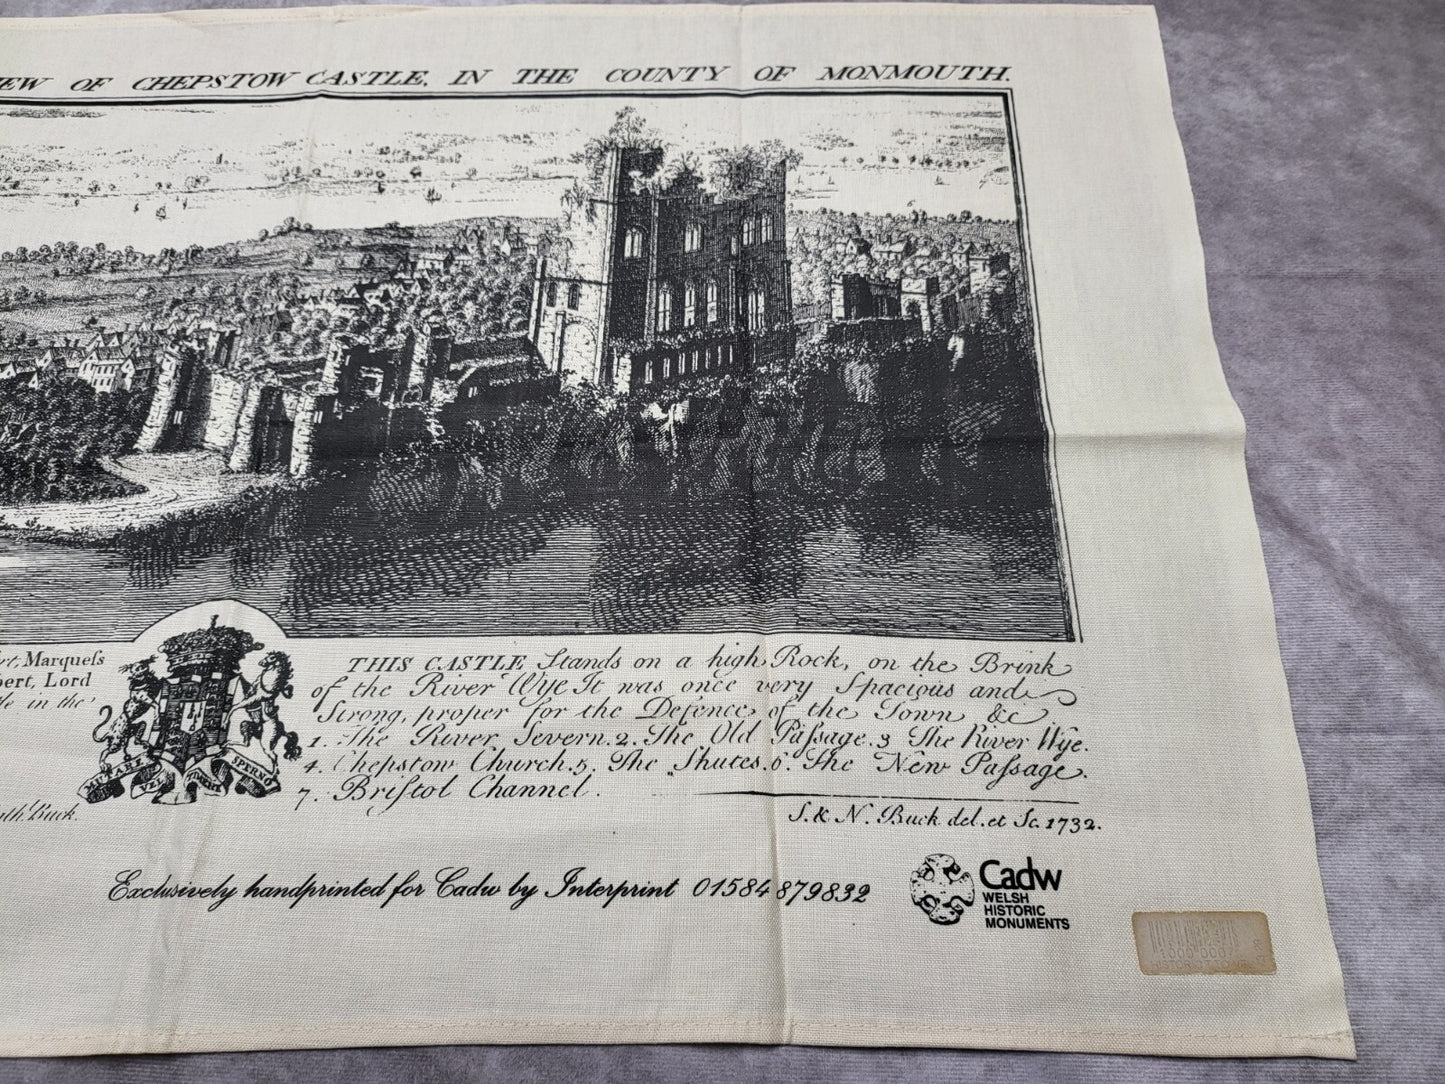 EW OF CHEPSTOW CASTLE, IN THE COUNTY OF MONMOUTH.
Marqueſs
Lord
in the
THIS CASTLE Stands on a high Rock, on the Brink
of the River Wye It was once very Spacious and
Strong, proper for the Defence of the Town &c
1. The River Severn. 2. The Old Paſsage. 3 The River Wye.
4. Chepstow Church. 5. The Shutes. 6. The New Paſsage.
7. Briſtol Channel.
MUTARE VEL TIMERE SPERNO
Buck.
S. & N. Buck del. et Sc. 1732.
Exclusively handprinted for Cadw by Interprint 01584 879832
Cadw
WELSH
HISTORIC
MONUMENTS